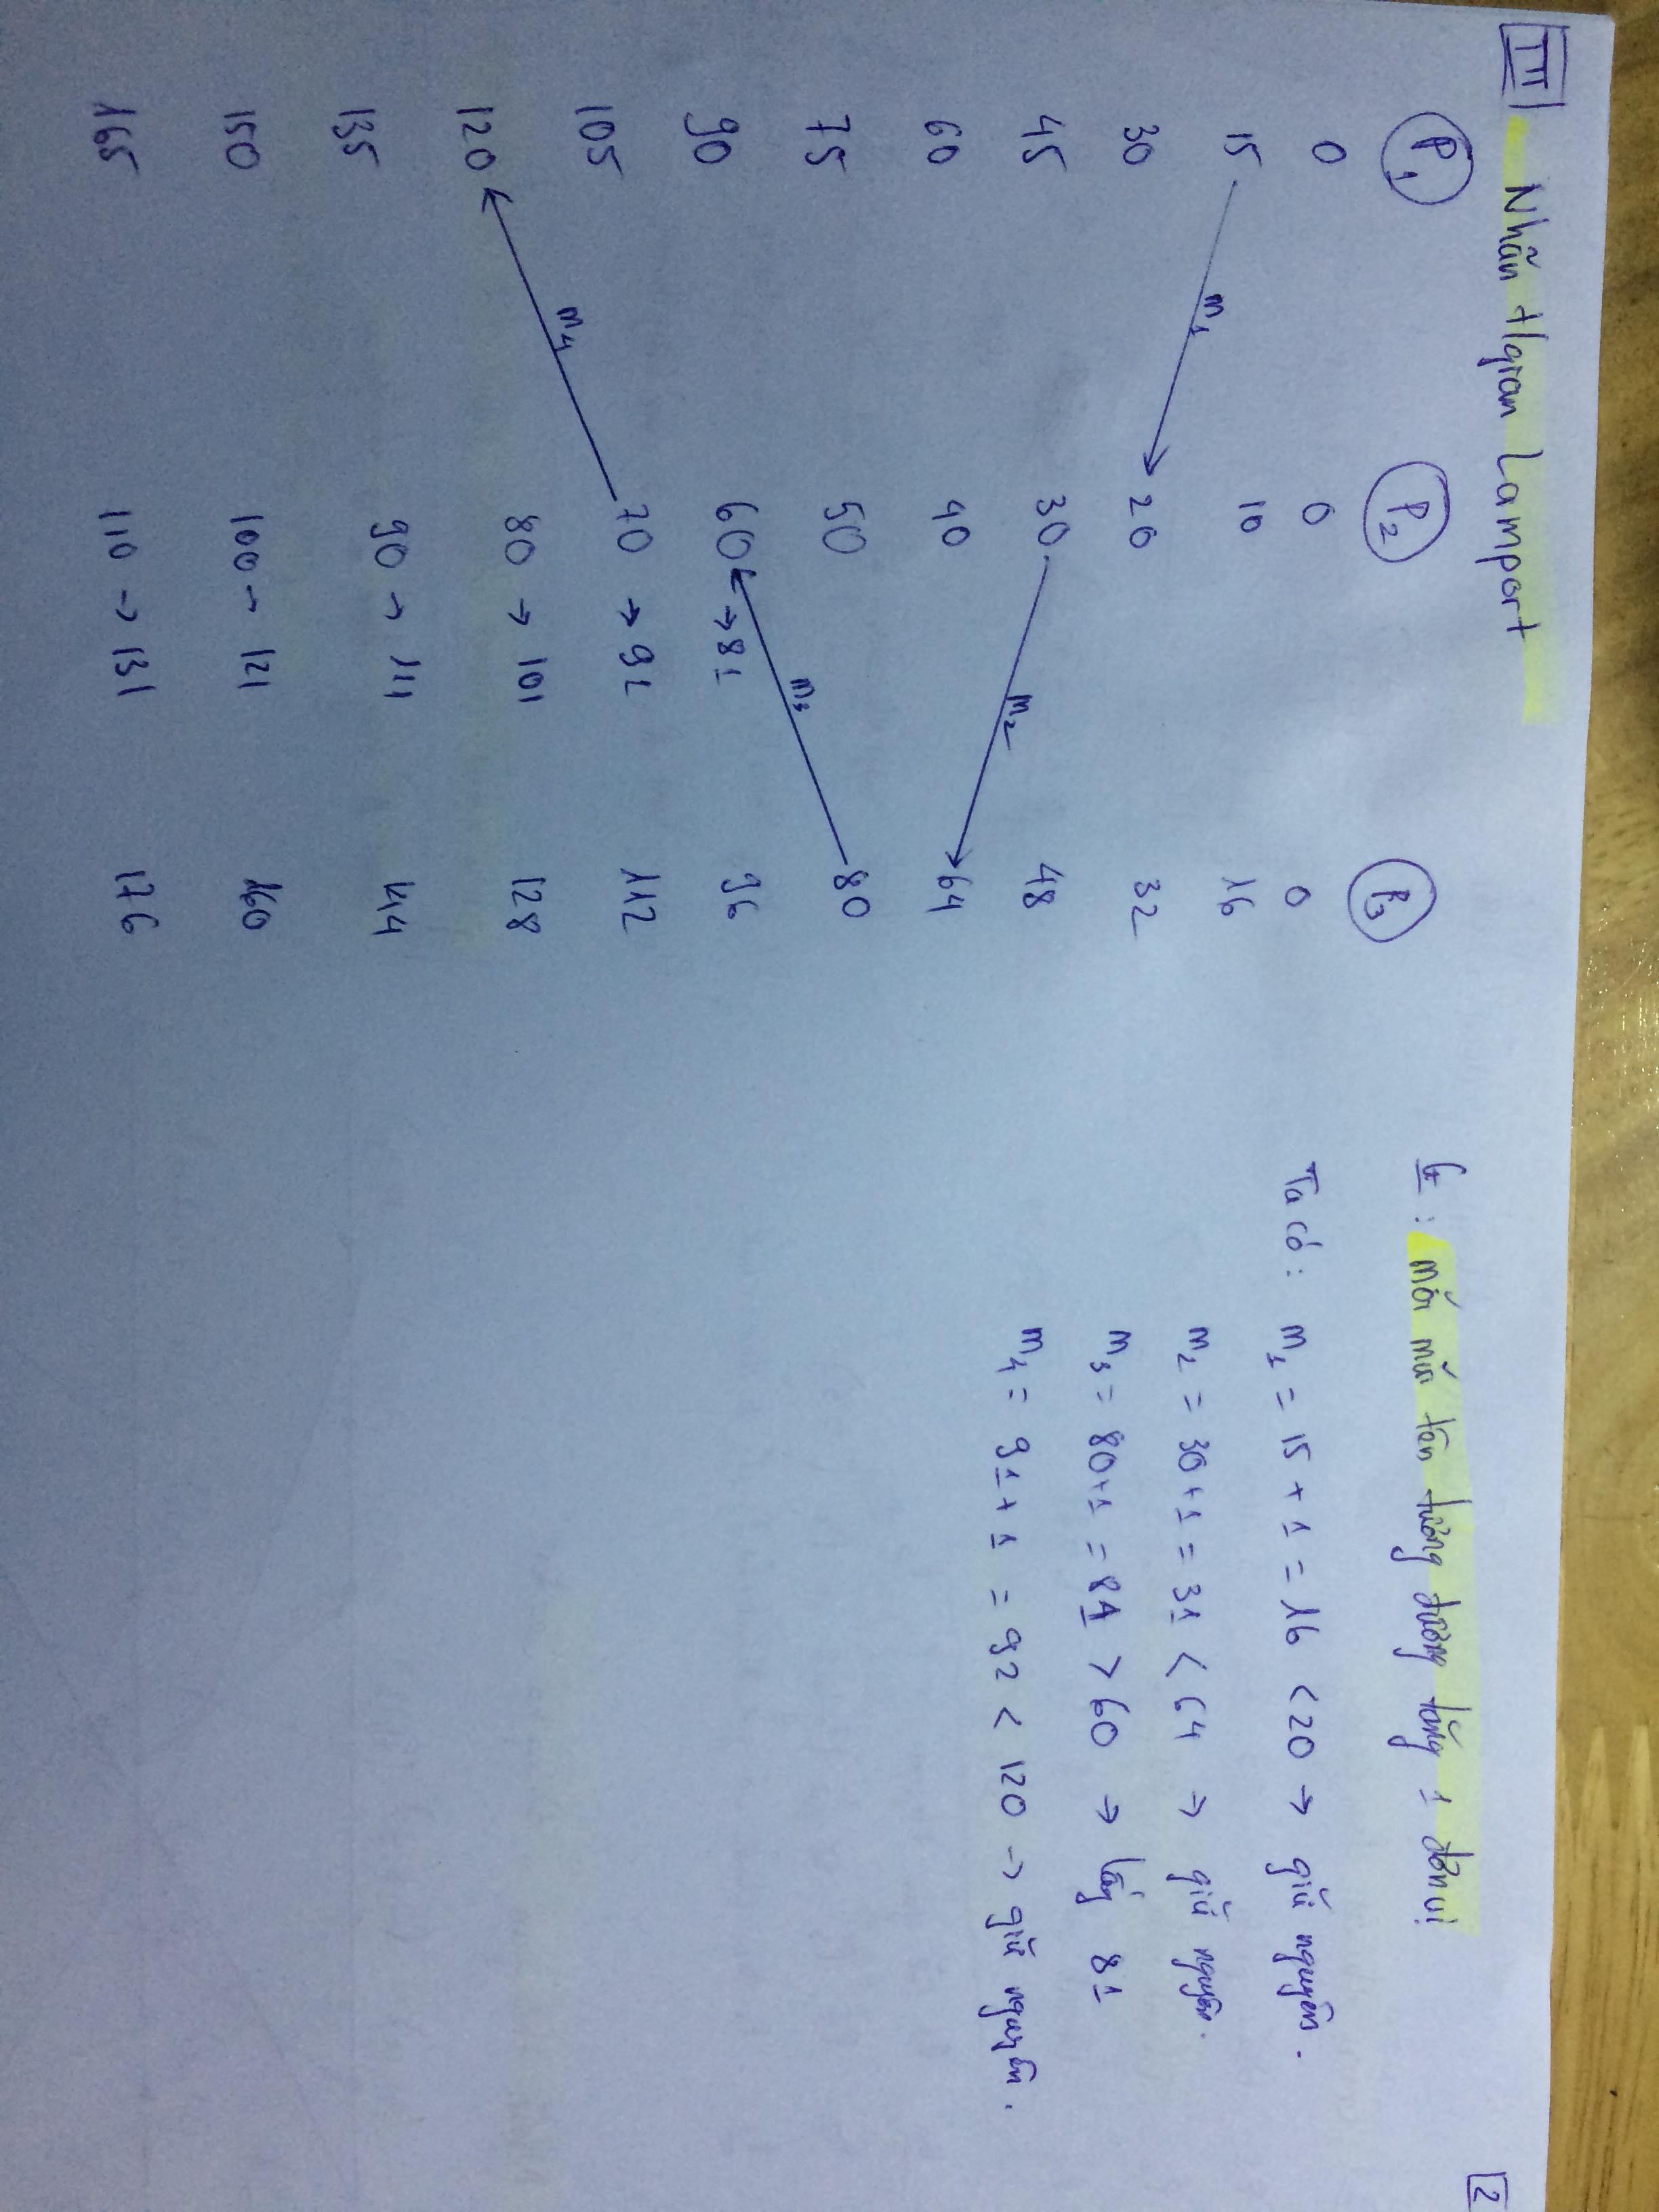 2
III Nhãn t/gian Lamport
P1 P2 P3
0 0 0
15 10 16
30 20 32
45 30 48
60 40 64
75 50 80
90 60 → 81 96
105 70 → 91 112
120 80 → 101 128
135 90 → 111 144
150 100 → 121 160
165 110 → 131 176
m1
m2
m3
m4
G : mỗi mũi tên tương đương tăng 1 đơn vị
Ta có : m1 = 15 + 1 = 16 < 20 → giữ nguyên .
m2 = 30 + 1 = 31 < 64 → giữ nguyên .
m3 = 80 + 1 = 81 > 60 → lấy 81
m4 = 91 + 1 = 92 < 120 → giữ nguyên .